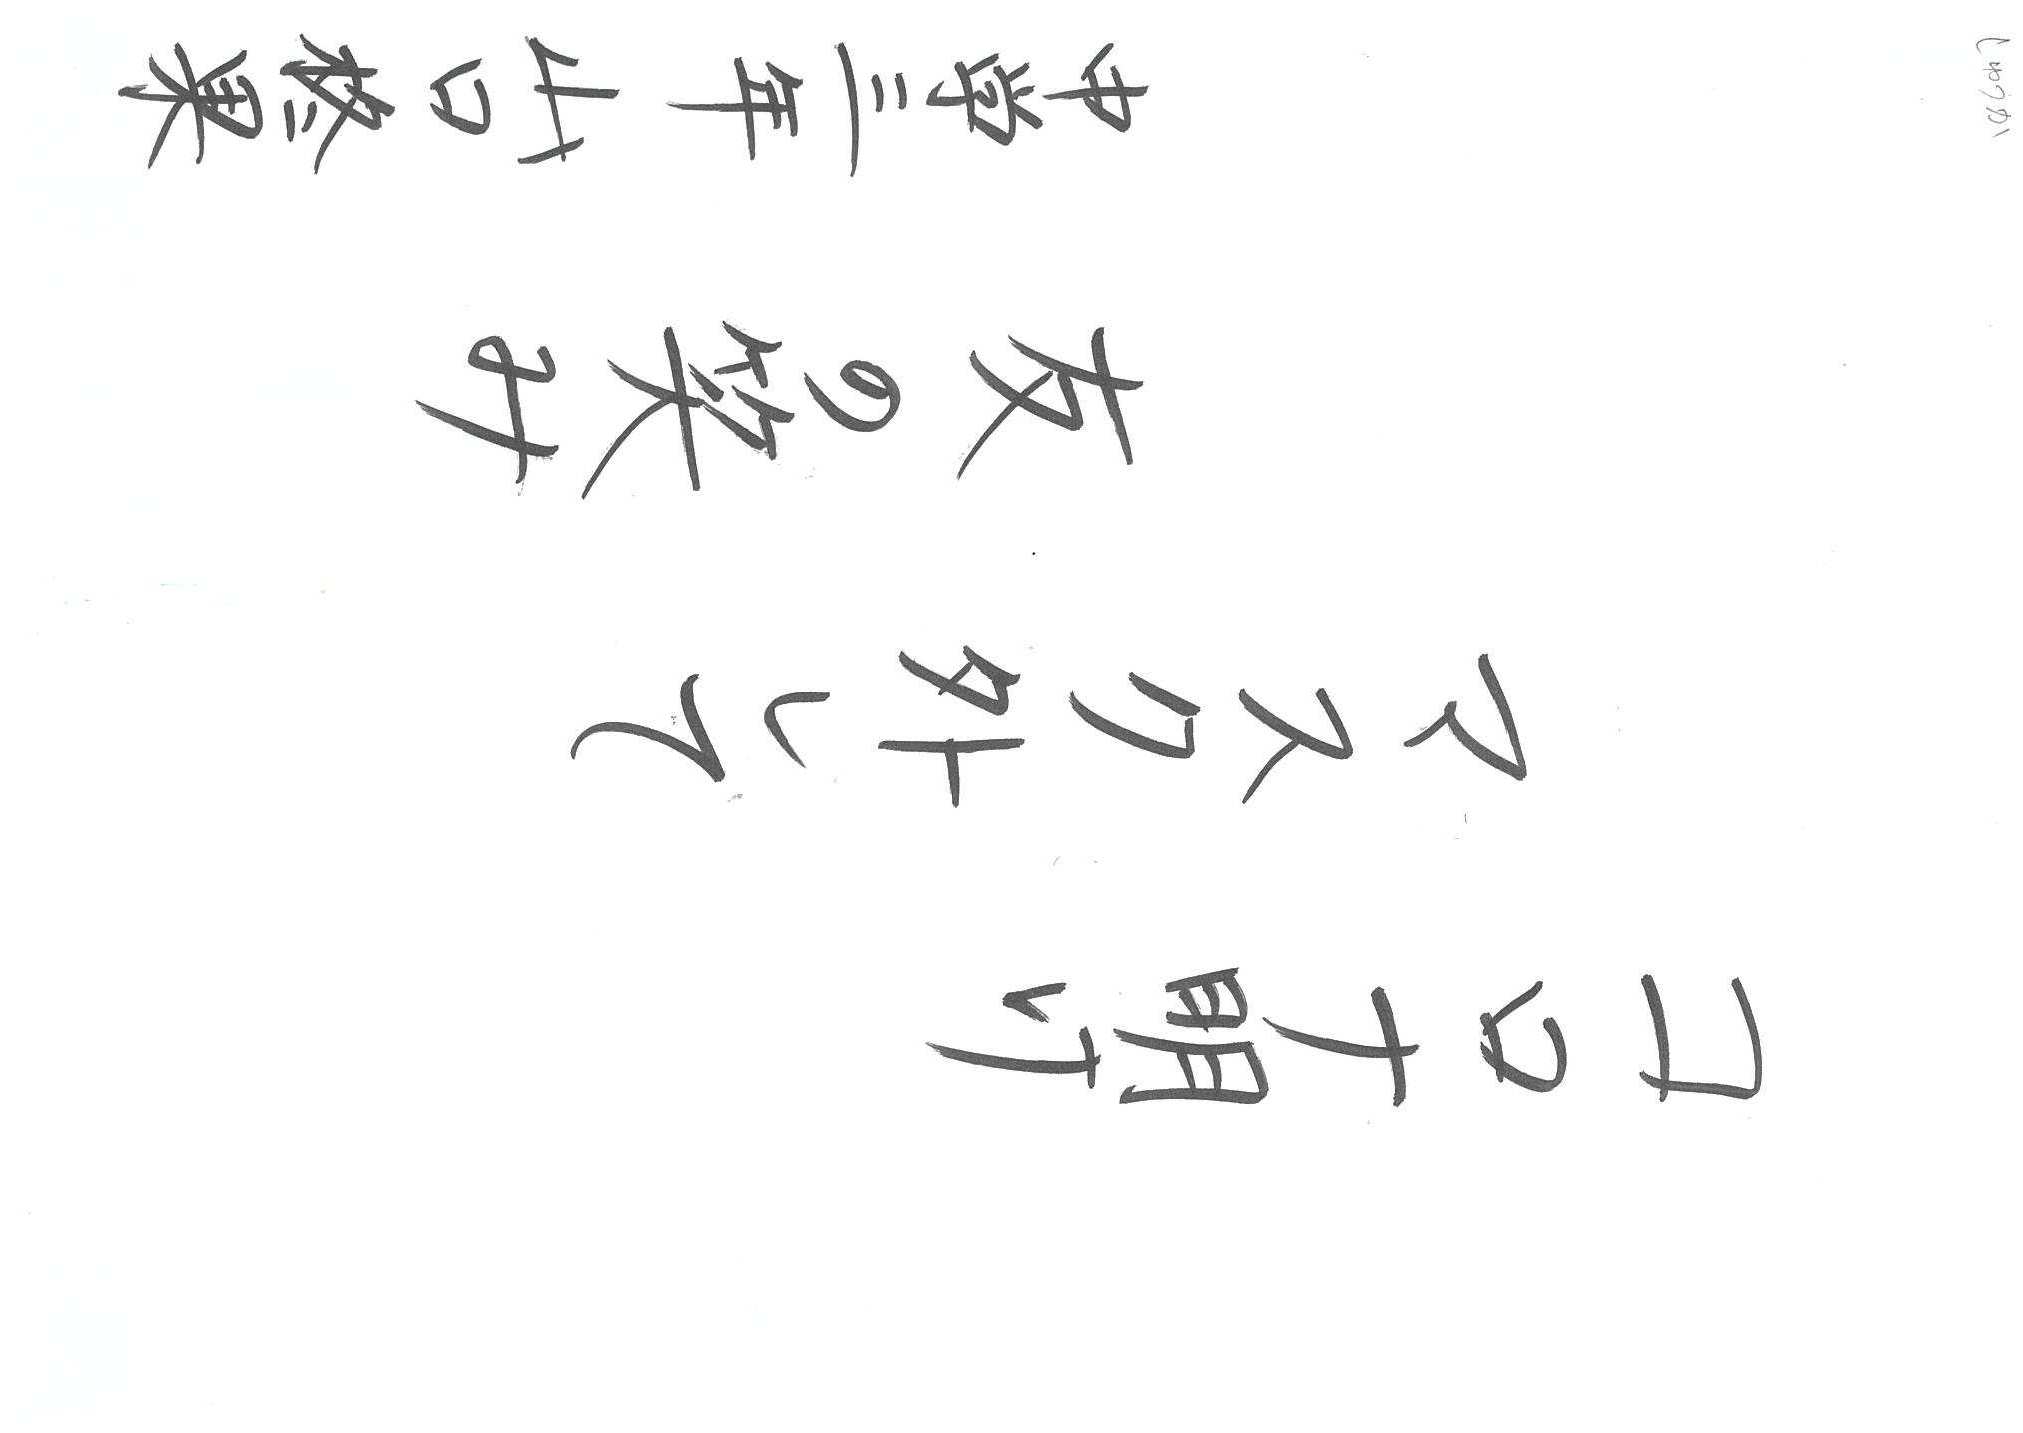 しゅうか
コロナ明け
マスク外して
友の笑み
中学三年 山口柊果